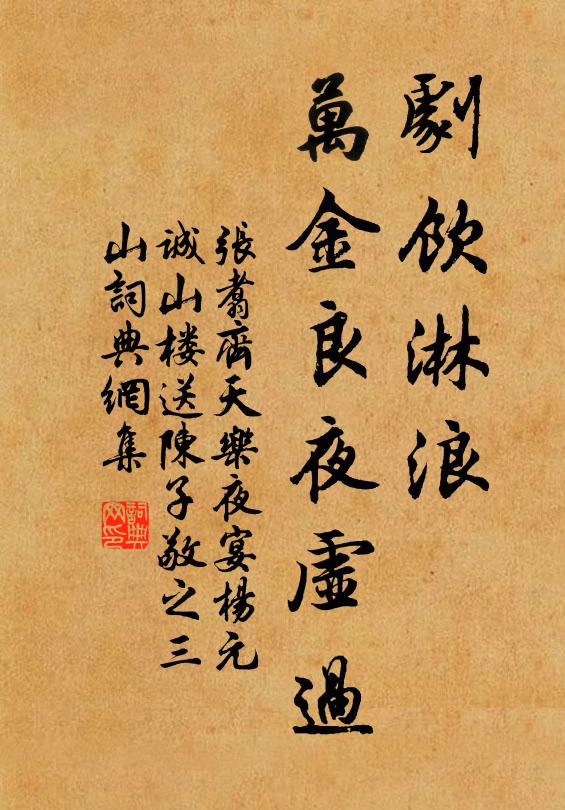 劇飲淋浪
萬金良夜虛過
張翥齊天樂夜宴楊元
誠山樓送陳子敬之三
山詞典網集
詞典網印